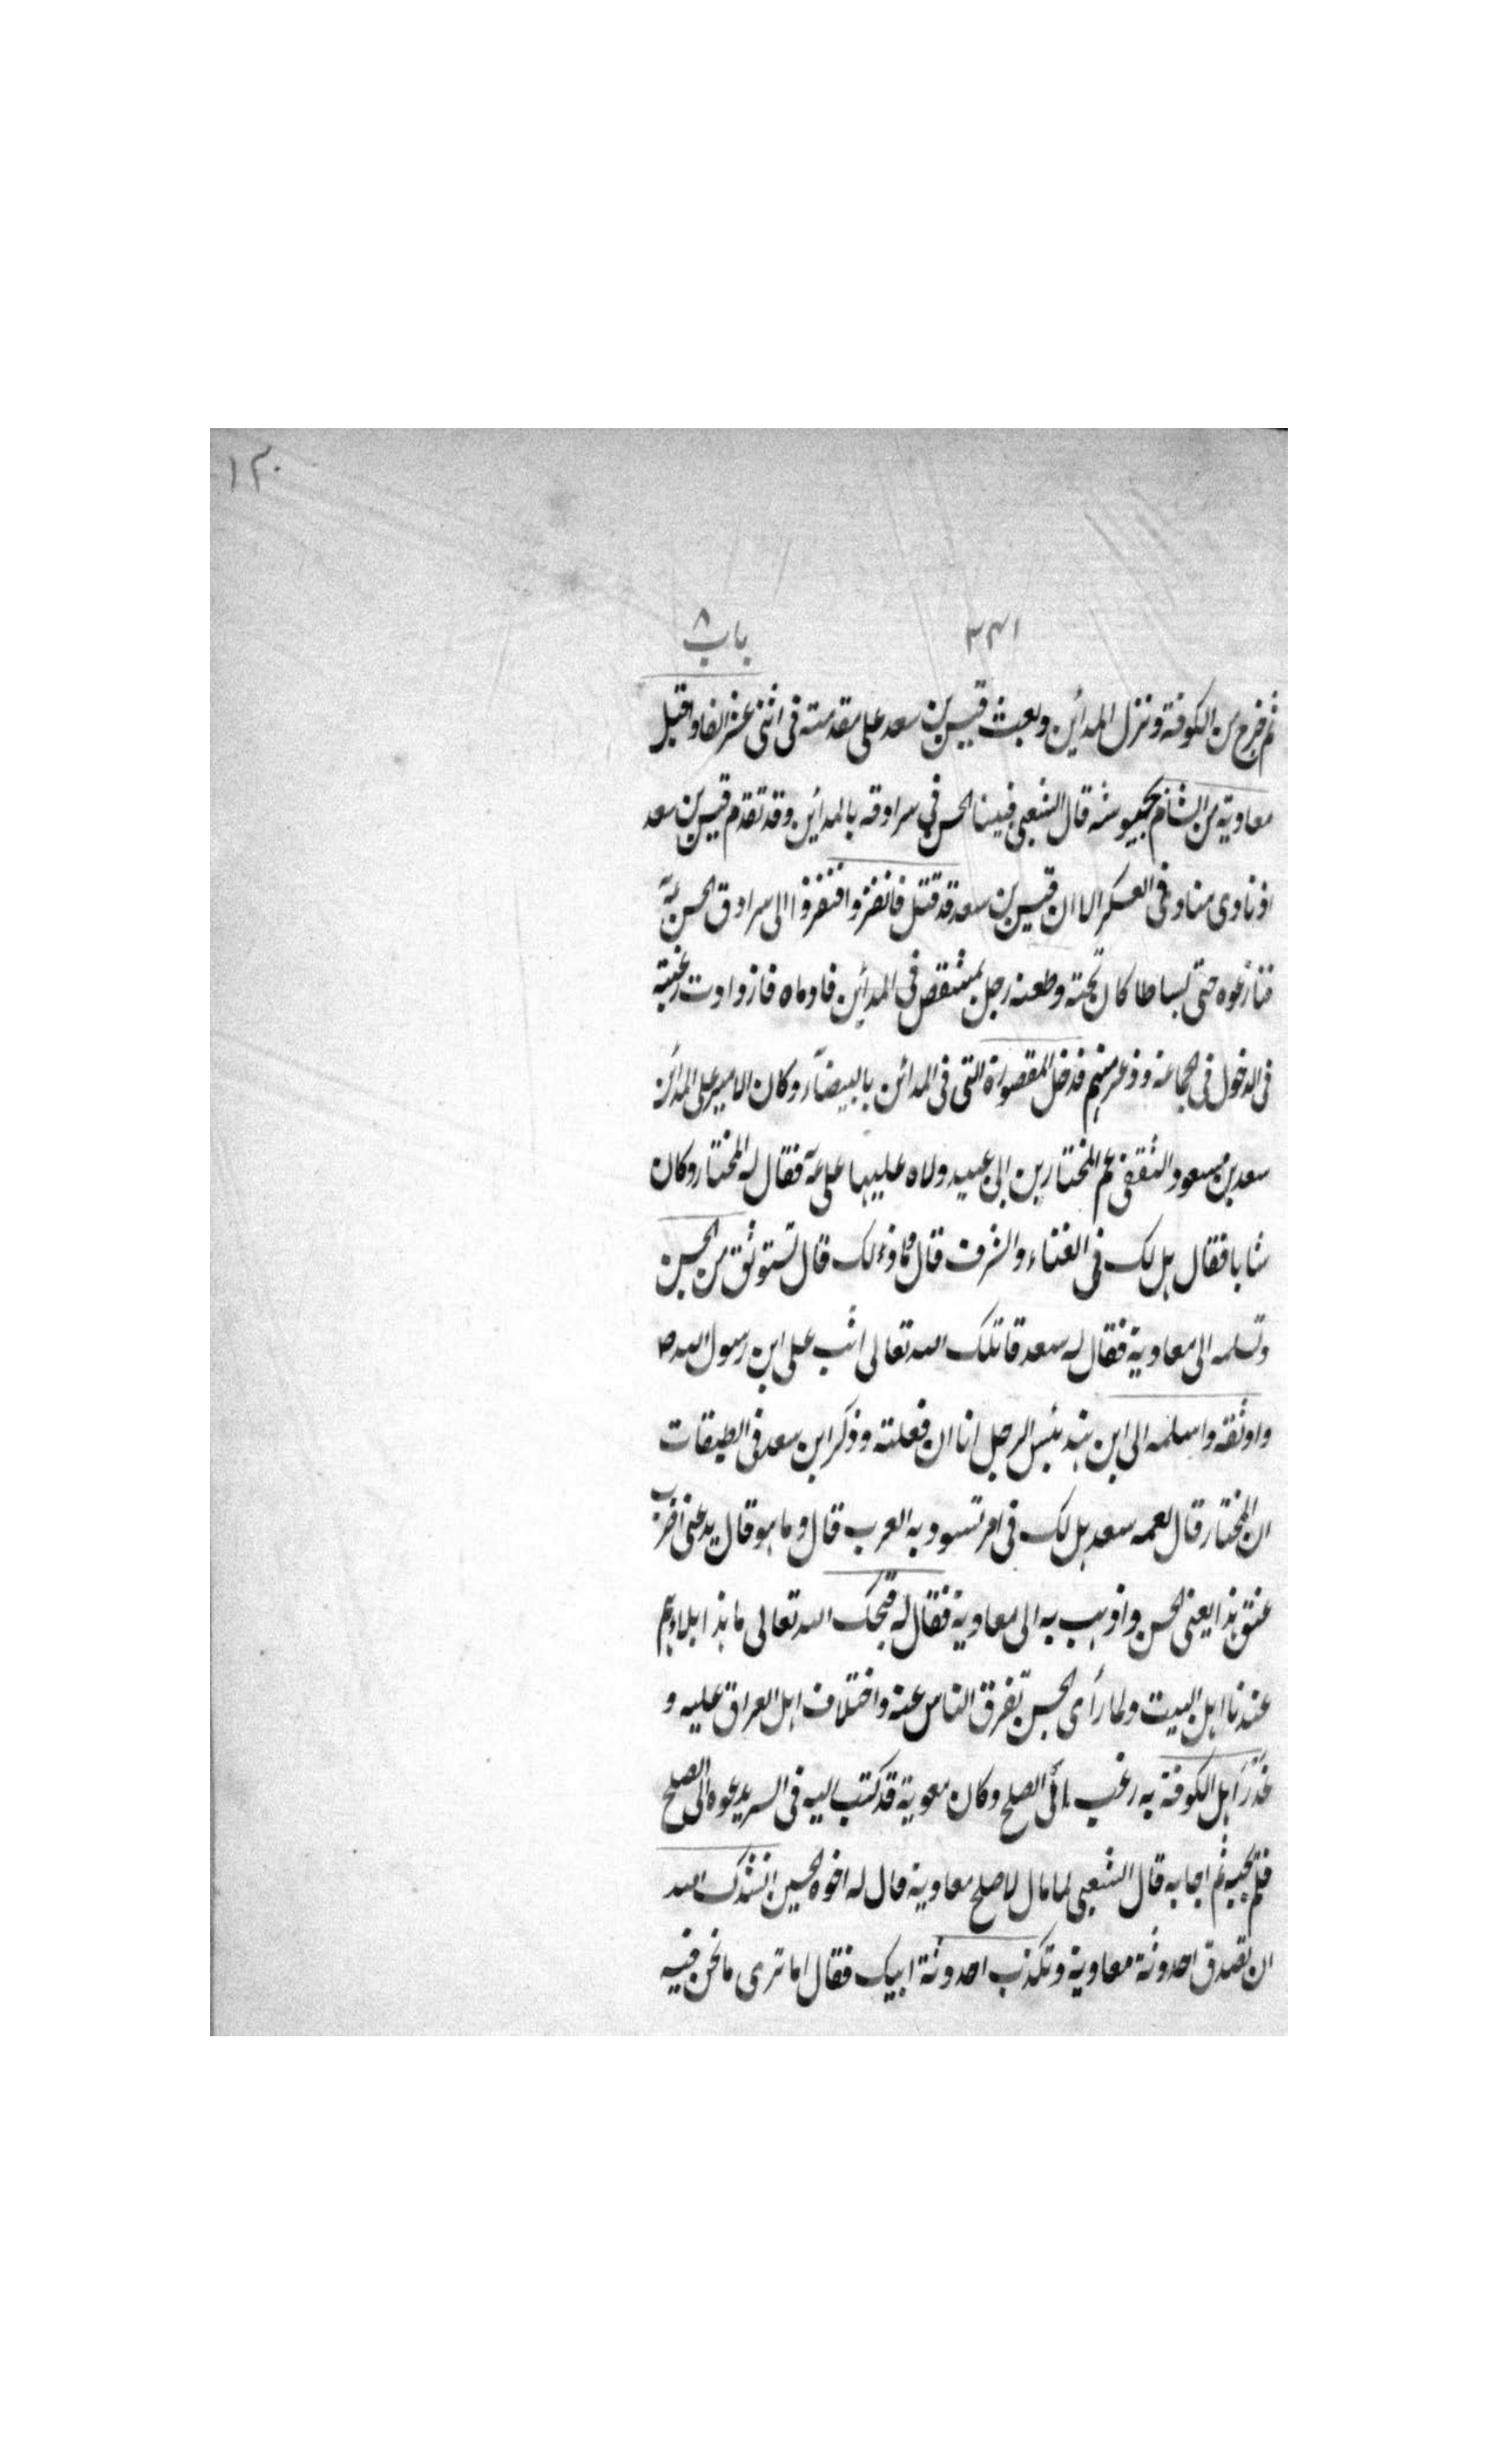 ١٣٠
٣٣١ باب ٨
ثم خرج من الكوفة ونزل المدائن وبعث قيس بن سعد على مقدمته فى اثنى عشر الفا واقبل
معاوية من الشام بجيوشه قال الشعبي فبينا الحسن في سرادقه بالمدائن وقد تقدم قيس بن سعد
اذ نادى مناد فى العسكر الا ان قيس بن سعد قد قتل فانفروا فنفروا الى سرادق الحسن عـ
فنازعوه حتى بساطا كان تحته وطعنه رجل بمشقص فى المدائن فادماه فازدادت رغبته
فى الدخول فى الجماعة وذعر منهم فدخل المقصورة التى فى المدائن بالبيضآء وكان الامير على المدائن
سعد بن مسعود الثقفى عم المختار بن ابى عبيد ولاه عليها على عـ فقال له المختار وكان
شابا فقال هل لك فى الغناء والشرف قال وما ذلك قال تستوثق من الحسن
وتسلمه الى معاوية فقال له سعد قاتلك الله تعالى اثب على ابن رسول الله صـ
واوثقه واسلمه الى ابن هند بئس الرجل انا ان فعلته وذكر ابن سعد فى الطبقات
ان المختار قال لعمه سعد هل لك فى امر تسود به العرب قال وما هو قال يدعنى اضرب
عنق هذا يعنى الحسن واذهب به الى معاوية فقال له قبحك الله تعالى ما هذا بلاءهم
عندنا اهل البيت ولما رأى الحسن تفرق الناس عنه واختلاف اهل العراق عليه و
غدر اهل الكوفة به رغب فى الصلح وكان معوية قد كتب اليه فى السر يدعوه الى الصلح
فلم يجبه ثم اجابه قال الشعبى لما مال لما صلح معاوية قال له اخوه الحسين انشدك الله
ان تصدق احدوثة معاوية وتكذب احدوثة ابيك فقال اما ترى ما نحن فيه